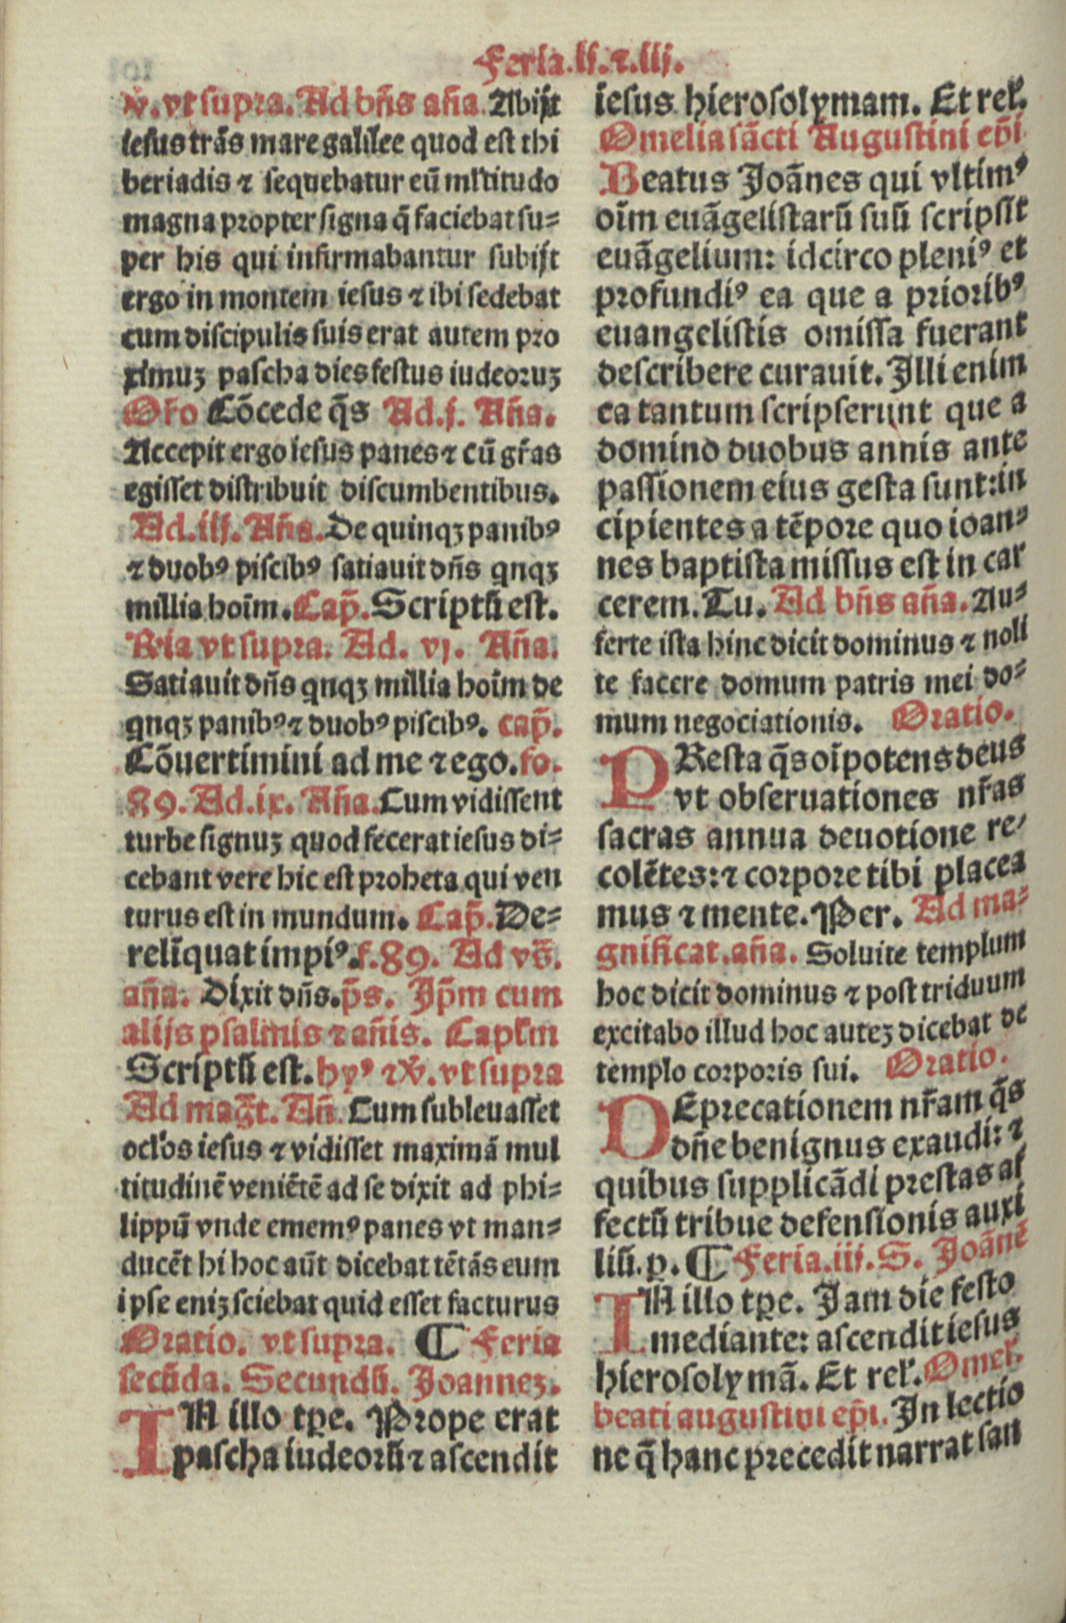 Feria.ij.⁊.iij.
℣. vt supra. Ad bñs aña. Abijt
iesus trãs mare galilee quod est thi
beriadis ⁊ sequebatur eũ mltitudo
magna propter signa q̃ faciebat su=
per his qui infirmabantur subijt
ergo in montem iesus ⁊ ibi sedebat
cum discipulis suis erat autem pro
ximuꝫ pascha dies festus iudeoruꝫ
Oro Cõcede q̃s Ad.j. Aña.
Accepit ergo iesus panes ⁊ cũ gr̃as
egisset distribuit discumbentibus.
Ad.iij. Aña. De quinqꝫ panibꝰ
⁊ duobꝰ piscibꝰ satiauit dñs qnqꝫ
millia hoĩm. Cap̃. Scriptũ est.
℟ia vt supra. Ad. vj. Aña.
Satiauit dñs qnqꝫ millia hoĩm de
qnqꝫ panibꝰ ⁊ duobꝰ piscibꝰ. cap̃.
Cõuertimini ad me ⁊ ego. fo.
89. Ad.ix. Aña. Cum vidissent
turbe signuꝫ quod fecerat iesus di=
cebant vere hic est proheta qui ven
turus est in mundum. Cap̃. De=
relĩquat impiꝰ. f.89. Ad vs̃.
aña. Dixit dñs. p̃s. Ip̃m cum
alijs psalmis ⁊ añis. Caplm
Scriptũ est. hyꝰ ⁊ ℣. vt supra
Ad mag̃t. Añ. Cum subleuasset
oclos iesus ⁊ vidisset maximã mul
titudinẽ veniẽtẽ ad se dixit ad phi=
lippũ vnde ememꝰ panes vt man=
ducẽt hi hoc aũt dicebat tẽtãs eum
ipse eniꝫ sciebat quid esset facturus
Oratio. vt supra. ¶ Feria
secũda. Secundũ. Joannez.
IN illo tꝑe. Prope erat
pascha iudeorũ ⁊ ascendit
iesus hierosolymam. Et rel̃.
Omelia sãcti Augustini ep̃i
Beatus Joãnes qui vltimꝰ
oĩm euãgelistarũ suũ scripsit
euãgelium: idcirco pleniꝰ et
profundiꝰ ea que a prioribꝰ
euangelistis omissa fuerant
describere curauit. Illi enim
ea tantum scripserunt que a
domino duobus annis ante
passionem eius gesta sunt:in
cipientes a tẽpore quo ioan=
nes baptista missus est in car
cerem. Tu. Ad bñs aña. Au=
ferte ista hinc dicit dominus ⁊ noli
te facere domum patris mei do=
mum negociationis. Oratio.
PResta q̃s oĩpotens deus
vt obseruationes nr̃as
sacras annua deuotione re=
colẽtes:⁊ corpore tibi placea
mus ⁊ mente. Per. Ad ma=
gnificat. aña. Soluite templum
hoc dicit dominus ⁊ post triduum
excitabo illud hoc autez dicebat de
templo corporis sui. Oratio.
DEprecationem nr̃am q̃s
dñe benignus exaudi: ⁊
quibus supplicãdi prestas af
fectũ tribue defensionis auxi
liũ. p. ¶ Feria.iij. S. Joãnẽ
IN illo tꝑe. Iam die festo
mediante: ascendit iesus
hierosolymã. Et rel̃. Omel̃.
beati augustini ep̃i. In lectio
ne q̃ hanc precedit narrat san